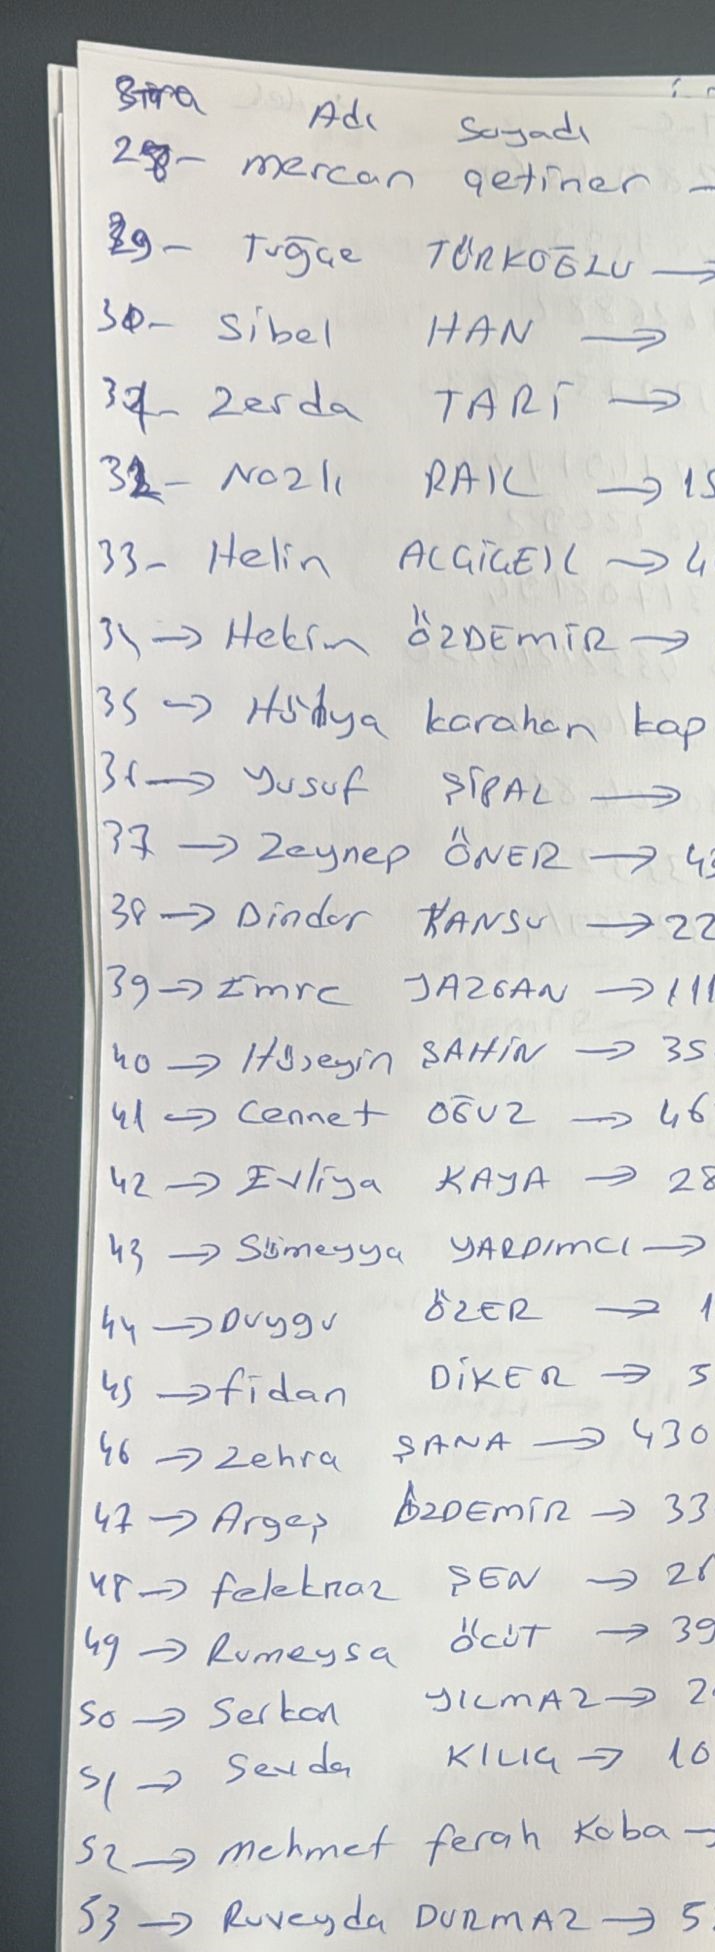 Sıra Adı Soyadı
28- mercan çetiner -
29- Tuğçe TÜRKOĞLU →
30- Sibel HAN →
31- Zerda TARİ →
32- Nazlı RAIL → 15
33- Helin → 4
34 → Hekim ÖZDEMİR →
35 → Hülya karahan kap
36 → Yusuf →
37 → Zeynep ÖNER → 43
38 → Dindar KANSU → 22
39 → Emre YAZGAN → 111
40 → Hüseyin ŞAHİN → 35
41 → Cennet OĞUZ → 46
42 → Evliya KAYA → 28
43 → Sümeyya YARDIMCI →
44 → Duygu ÖZER → 1
45 → fidan DİKER → 5
46 → Zehra ŞANA → 430
47 → Argeş ÖZDEMİR → 33
48 → feleknaz ŞEN → 28
49 → Rumeysa ÖCÜT → 39
50 → Serkan YILMAZ → 2
51 → Sevda KILIÇ → 10
52 → mehmet ferah Koba -
53 → Ruveyda DURMAZ → 5